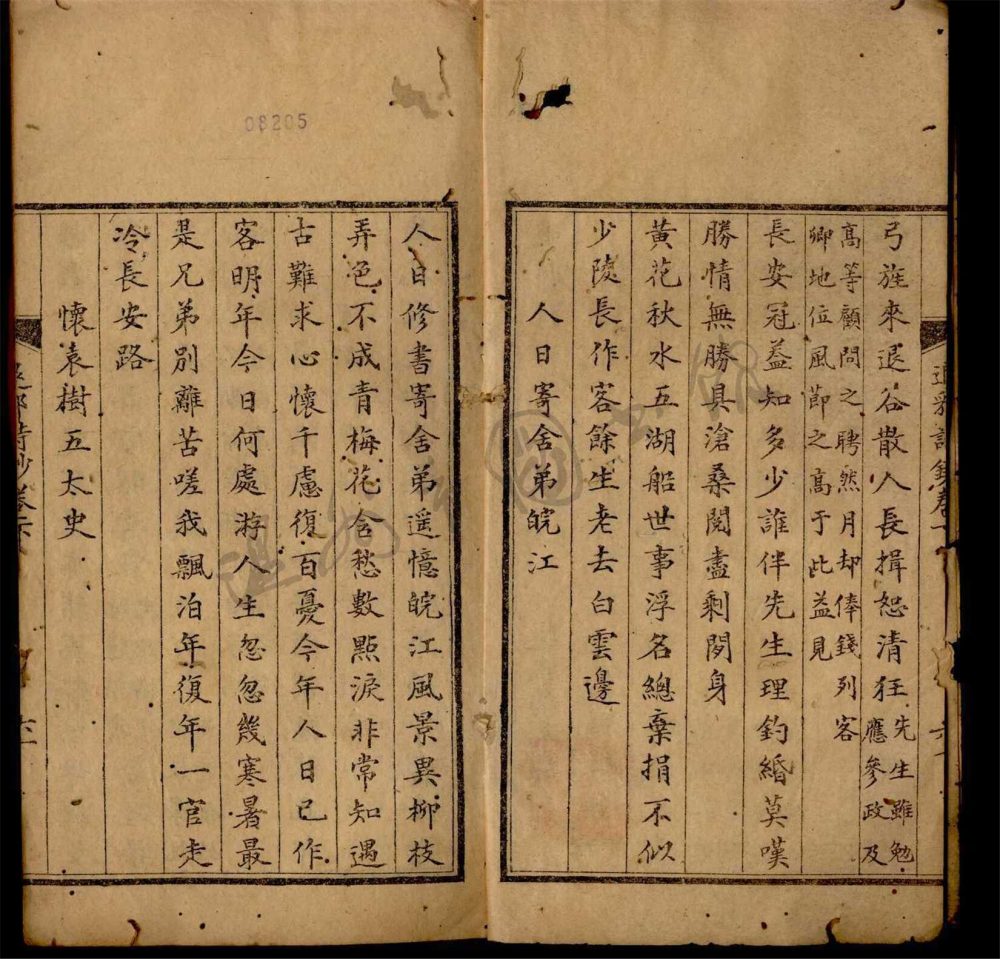 弓旌來退谷散人長揖恕清狂先生雖勉應參政及
高等顧問之聘然月却俸錢列客
卿地位風節之高于此益見
長安冠蓋知多少誰伴先生理釣緡莫嘆
勝情無勝具滄桑閱盡剩閒身
黃花秋水五湖船世事浮名總棄捐不似
少陵長作客餘生老去白雲邊
人日寄舍弟皖江
人日修書寄舍弟遥憶皖江風景異柳枝
弄色不成青梅花含愁數點淚非常知遇
古難求心懷千慮復百憂今年人日已作
客明年今日何處游人生忽忽幾寒暑最
是兄弟別離苦嗟我飄泊年復年一官走
冷長安路
懷袁樹五太史
08205